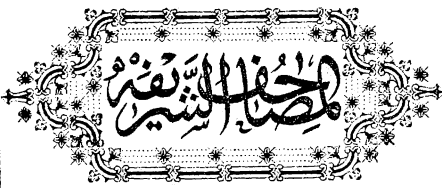 المصاحف الشريفة